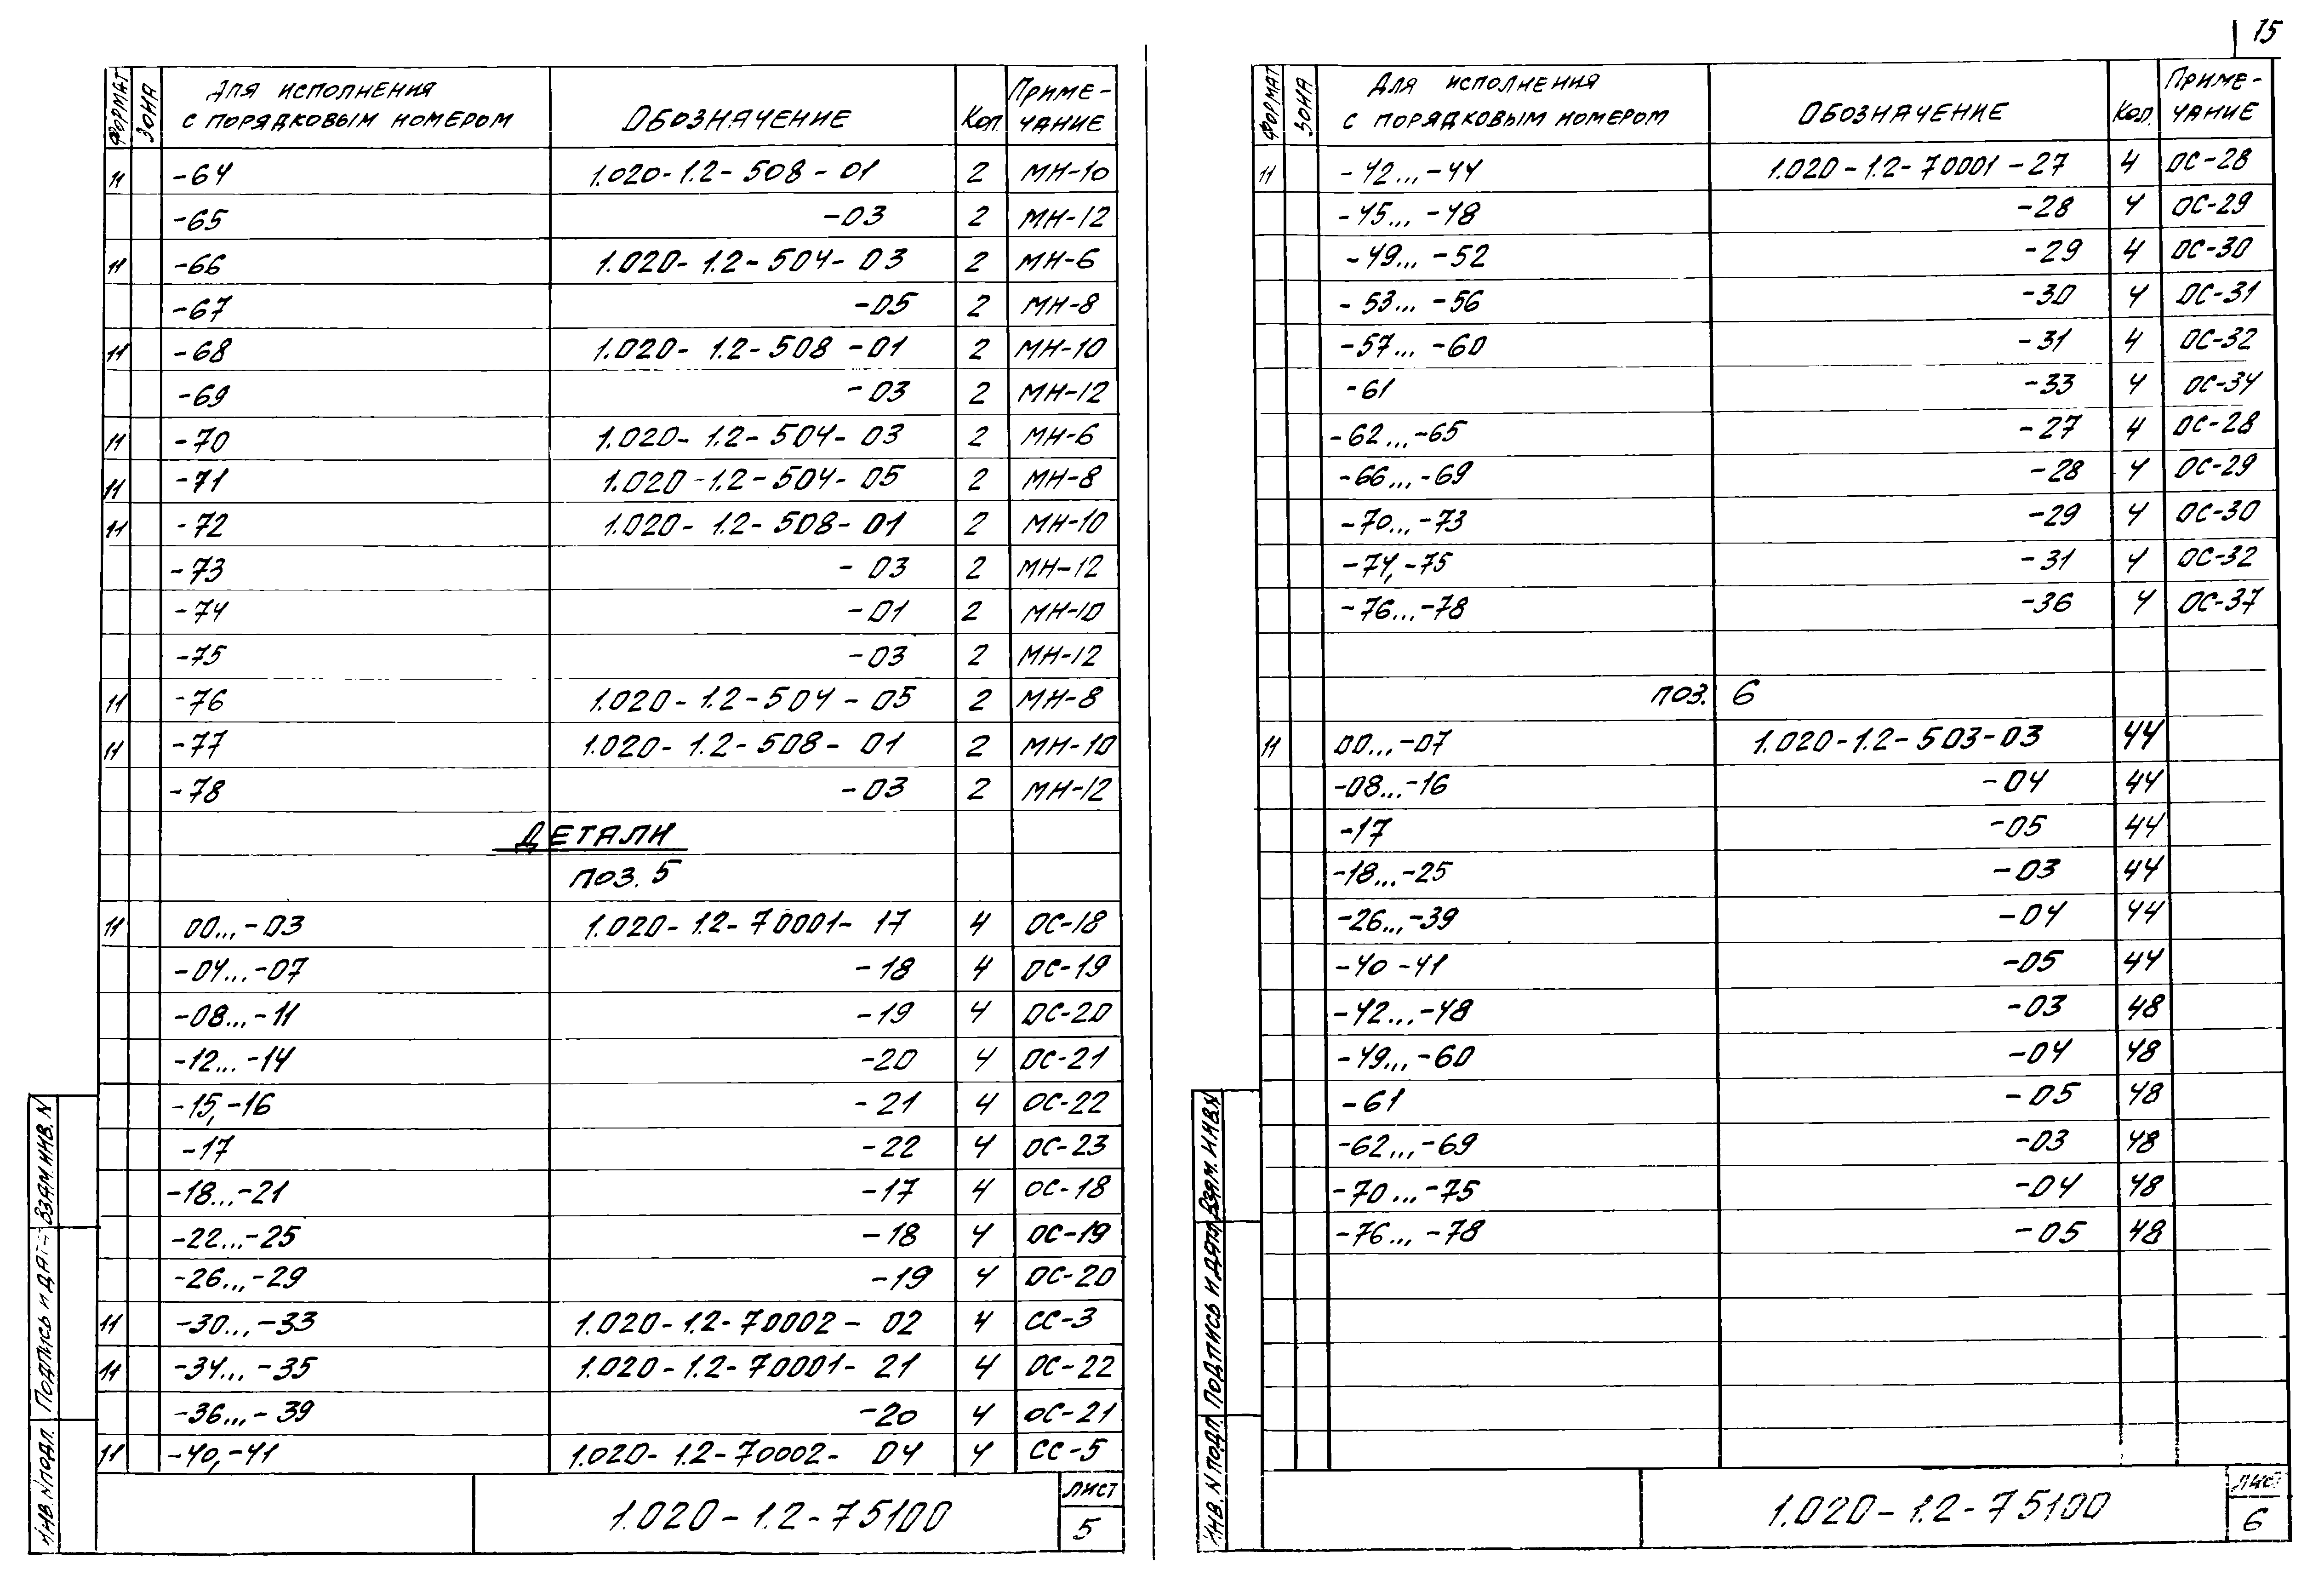 15
ФОРМАТ ЗОНА Для исполнения с порядковым номером Обозначение Кол. Приме-чание
11 -64 1.020-1.2-508-01 2 МН-10
-65 -03 2 МН-12
11 -66 1.020-1.2-504-03 2 МН-6
-67 -05 2 МН-8
11 -68 1.020-1.2-508-01 2 МН-10
-69 -03 2 МН-12
11 -70 1.020-1.2-504-03 2 МН-6
11 -71 1.020-1.2-504-05 2 МН-8
11 -72 1.020-1.2-508-01 2 МН-10
-73 -03 2 МН-12
-74 -01 2 МН-10
-75 -03 2 МН-12
11 -76 1.020-1.2-504-05 2 МН-8
11 -77 1.020-1.2-508-01 2 МН-10
-78 -03 2 МН-12
ДЕТАЛИ
поз. 5
11 00...-03 1.020-1.2-70001-17 4 ОС-18
-04...-07 -18 4 ОС-19
-08...-11 -19 4 ОС-20
-12...-14 -20 4 ОС-21
-15,-16 -21 4 ОС-22
-17 -22 4 ОС-23
-18...-21 -17 4 ОС-18
-22...-25 -18 4 ОС-19
-26...-29 -19 4 ОС-20
11 -30...-33 1.020-1.2-70002-02 4 СС-3
11 -34...-35 1.020-1.2-70001-21 4 ОС-22
-36...-39 -20 4 ОС-21
11 -40,-41 1.020-1.2-70002-04 4 СС-5
ИНВ. N ПОДЛ. ПОДПИСЬ И ДАТА ВЗАМ. ИНВ. N
1.020-1.2-75100
ЛИСТ
5
ФОРМАТ ЗОНА Для исполнения с порядковым номером Обозначение Кол. Приме-чание
11 -42...-44 1.020-1.2-70001-27 4 ОС-28
-45...-48 -28 4 ОС-29
-49...-52 -29 4 ОС-30
-53...-56 -30 4 ОС-31
-57...-60 -31 4 ОС-32
-61 -33 4 ОС-34
-62...-65 -27 4 ОС-28
-66...-69 -28 4 ОС-29
-70...-73 -29 4 ОС-30
-74,-75 -31 4 ОС-32
-76...-78 -36 4 ОС-37
поз. 6
11 00...-07 1.020-1.2-503-03 44
-08...-16 -04 44
-17 -05 44
-18...-25 -03 44
-26...-39 -04 44
-40 -41 -05 44
-42...-48 -03 48
-49...-60 -04 48
-61 -05 48
-62...-69 -03 48
-70...-75 -04 48
-76...-78 -05 48
ИНВ. N ПОДЛ. ПОДПИСЬ И ДАТА ВЗАМ. ИНВ. N
1.020-1.2-75100
ЛИСТ
6